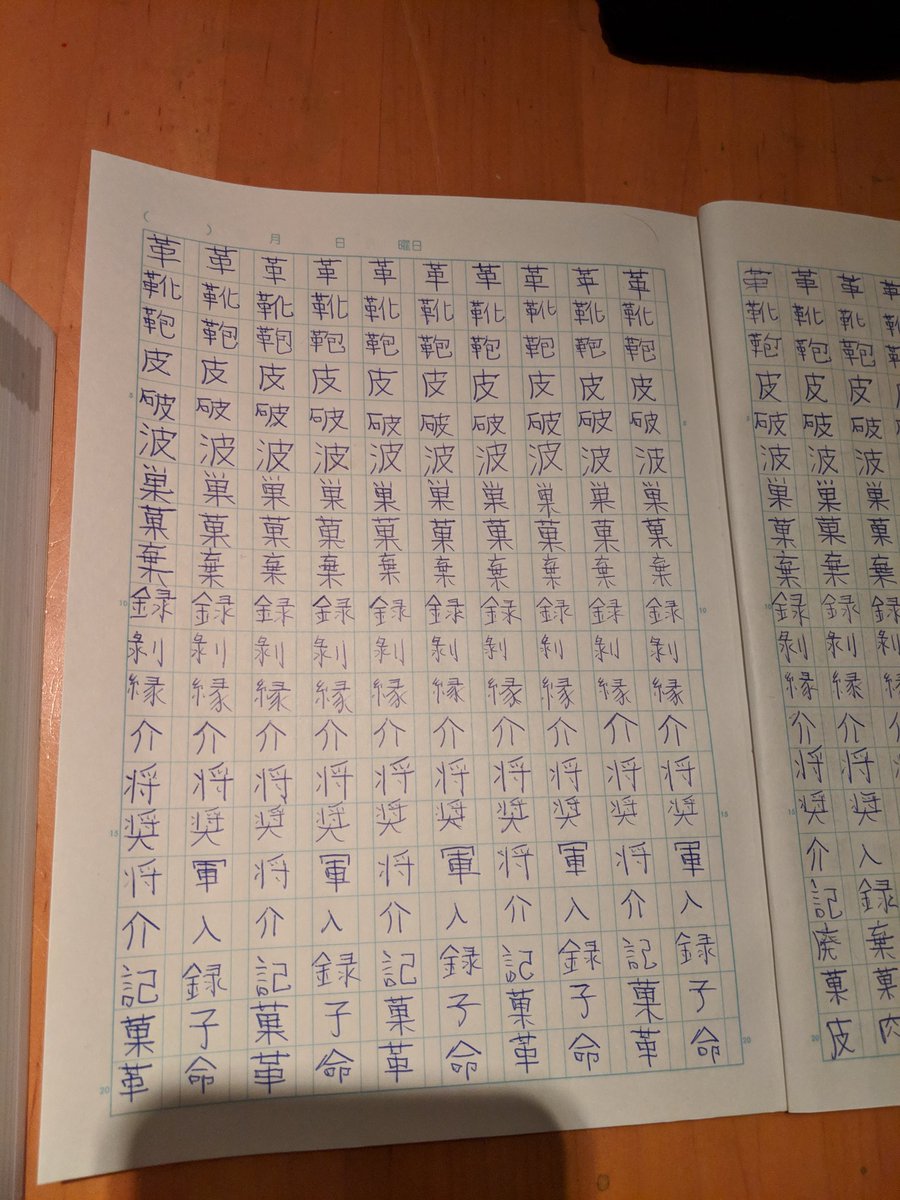 ( ) 月 日 曜日
革革革革革革革革革革
靴靴靴靴靴靴靴靴靴靴
鞄鞄鞄鞄鞄鞄鞄鞄鞄鞄
皮皮皮皮皮皮皮皮皮皮
5 破破破破破破破破破破 5
波波波波波波波波波波
巣巣巣巣巣巣巣巣巣巣
菓菓菓菓菓菓菓菓菓菓
棄棄棄棄棄棄棄棄棄棄
10 録録録録録録録録録録 10
剥剥剥剥剥剥剥剥剥剥
縁縁縁縁縁縁縁縁縁縁
介介介介介介介介介介
将将将将将将将将将将
15 奨奨奨奨奨奨奨奨奨奨 15
将軍将軍将軍将軍将軍
介入介入介入介入介入
記録記録記録記録記録
菓子菓子菓子菓子菓子
20 革命革命革命革命革命 20
革革革
靴靴靴
鞄鞄鞄
皮皮皮
5 破破破
波波波
巣巣巣
菓菓菓
棄棄棄
10 録録録
剥剥剥
縁縁縁
介介
将将
15 奨奨
介入
記録
廃棄
菓菓
20 皮肉